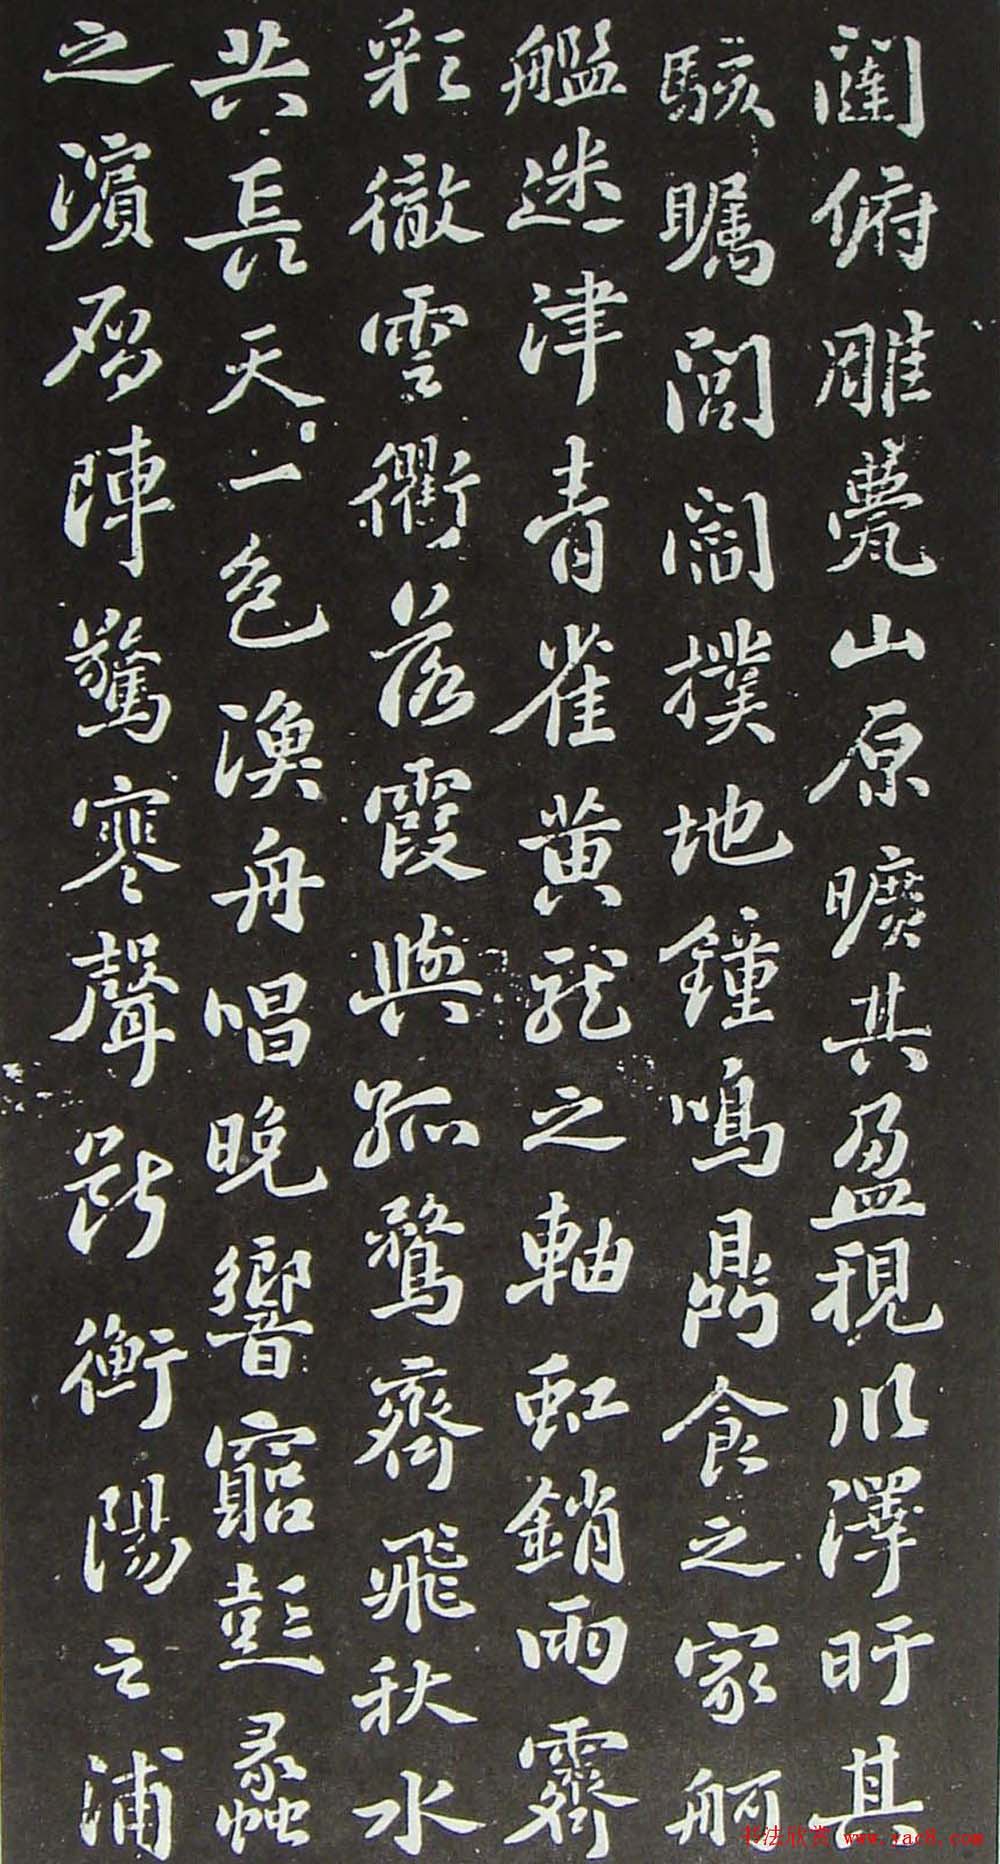 闥俯雕甍山原曠其盈視川澤盱其
駭矚閭閻撲地鐘鳴鼎食之家舸
艦迷津青雀黃龍之軸虹銷雨霽
彩徹雲衢落霞與孤鶩齊飛秋水
共長天一色漁舟唱晚響窮彭蠡
之濱雁陣驚寒聲斷衡陽之浦
书法欣赏 www.yac8.com